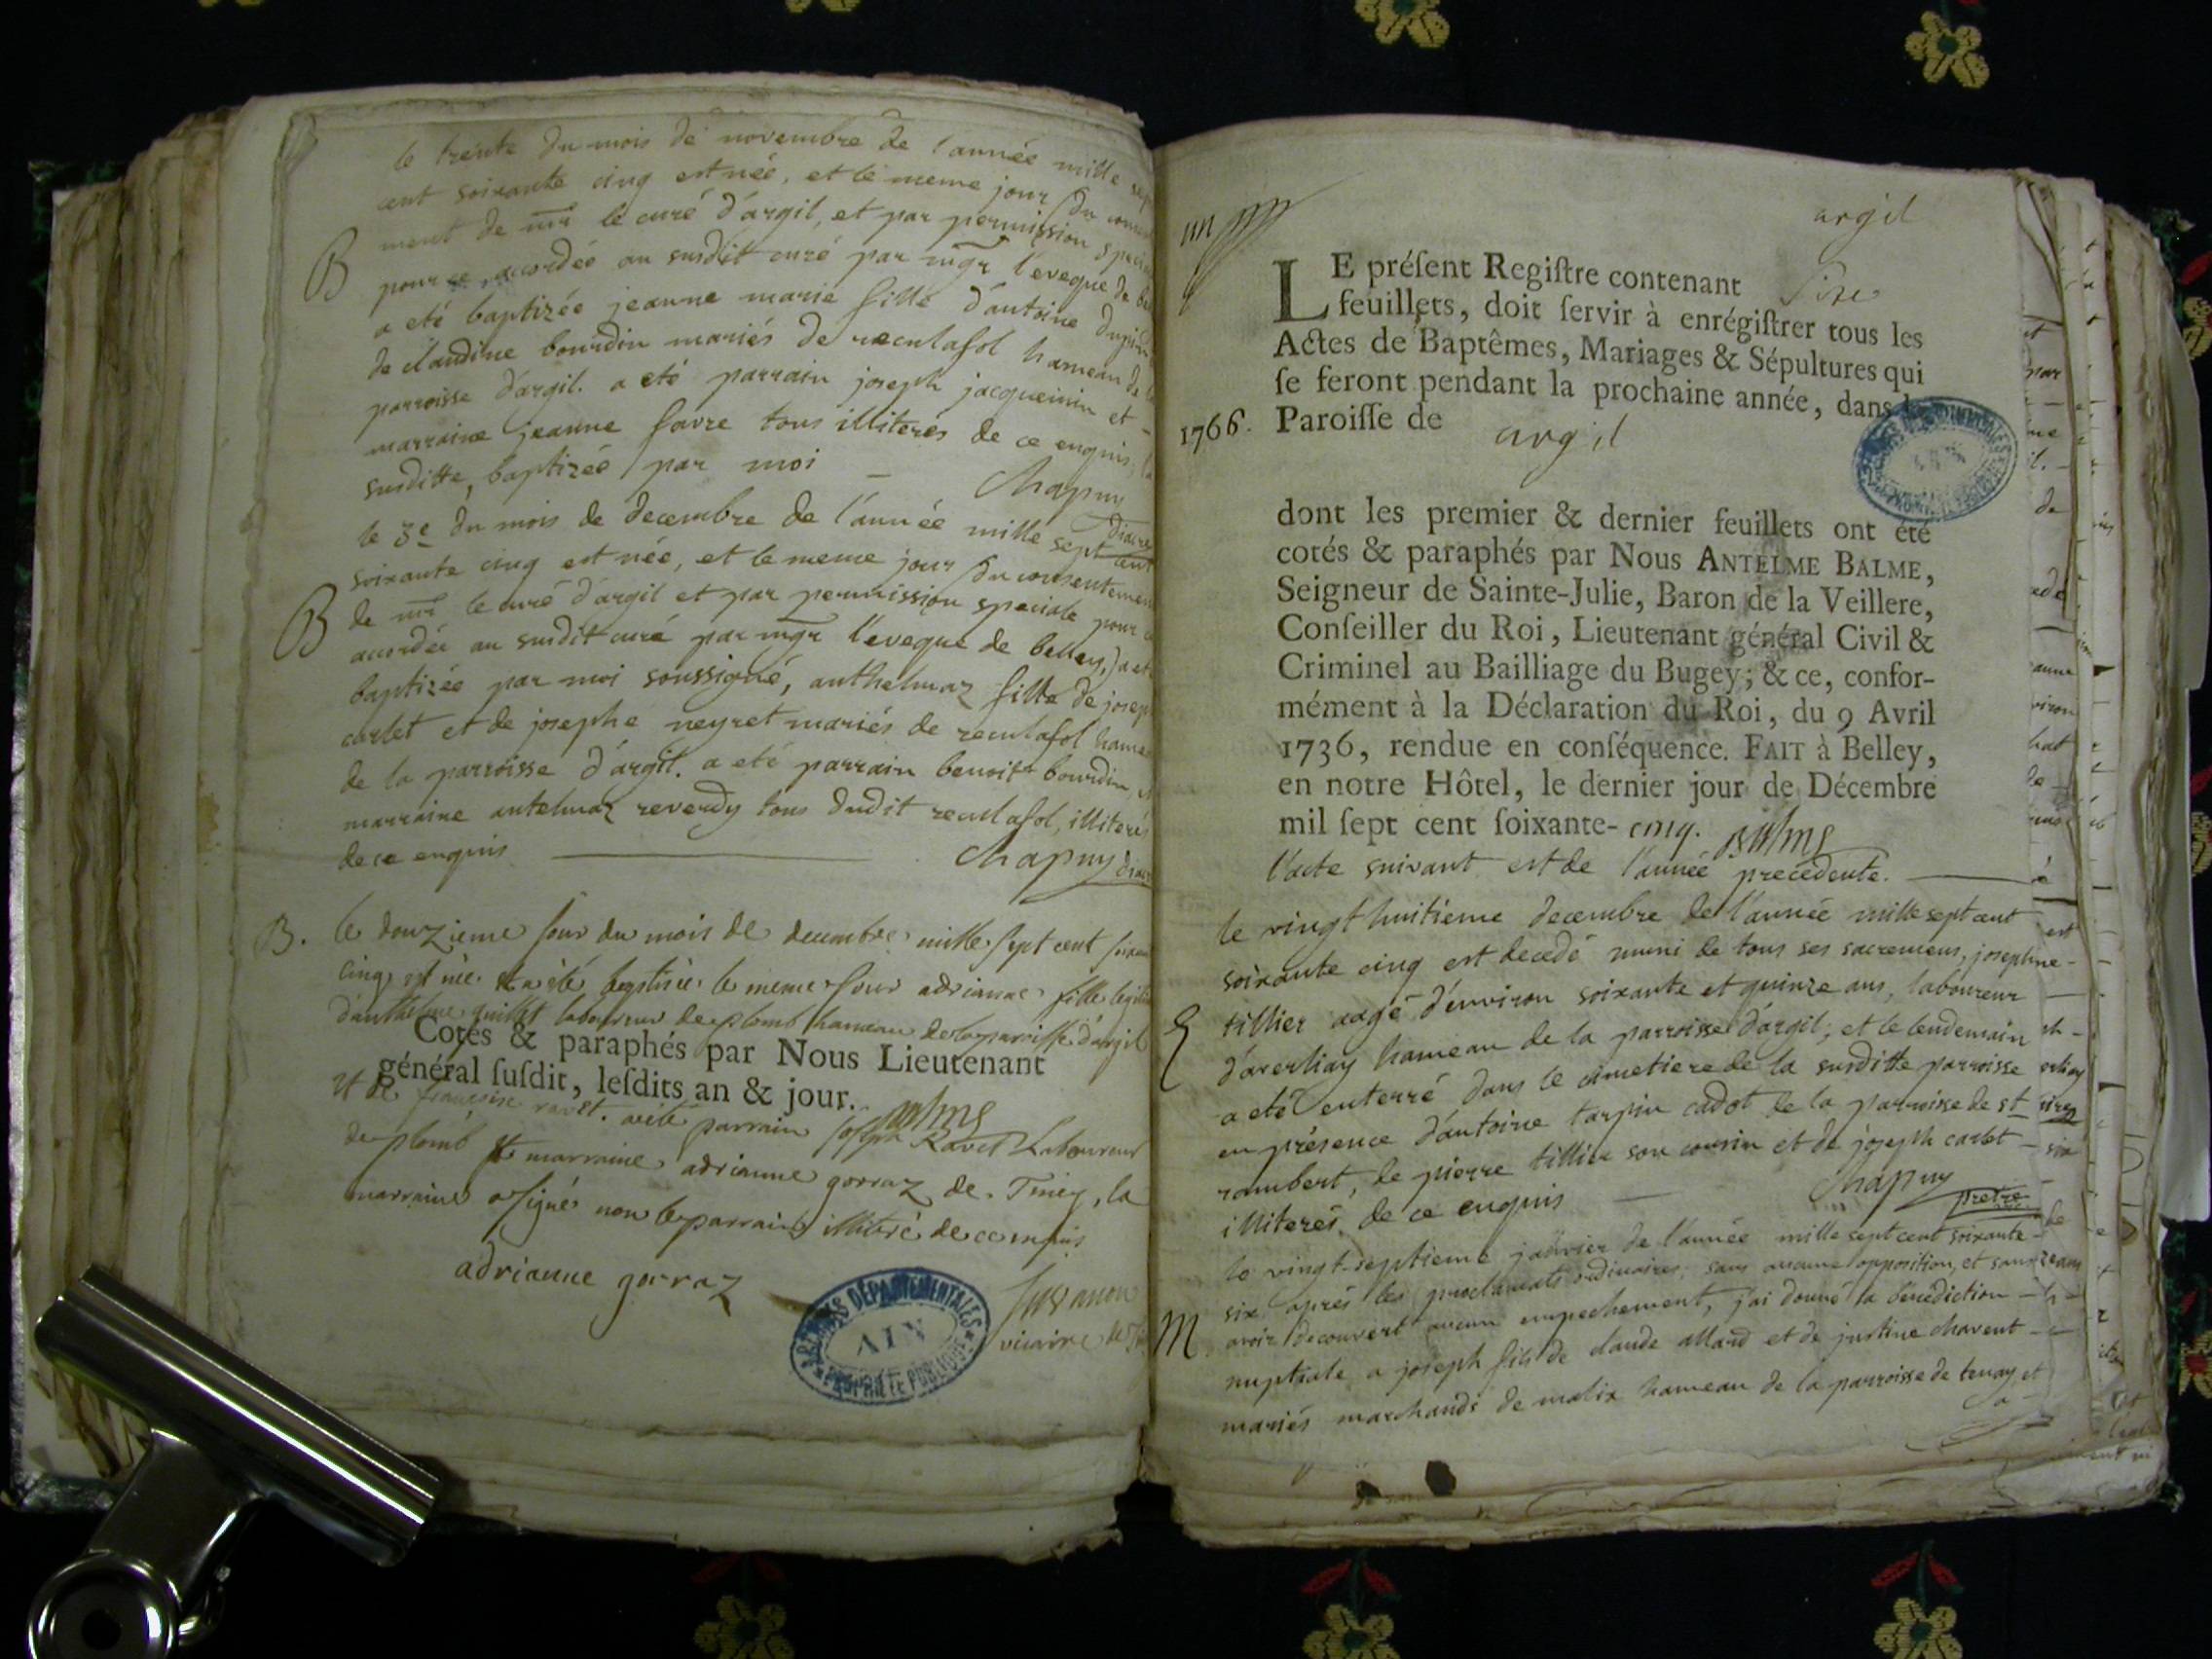 le trente du mois de novembre de l'année mille sept
cent soixante cinq est née, et le meme jour (du
ment de mr le curé d'argil, et par permission
B pour ce accordée au susdit curé par mgr l'eveque de
a eté baptizée jeanne marie fille d'antoine
de claudine bourdin mariés de reculafol hameau de
parroisse d'argil. a eté parrain joseph jacquemin et
marraine jeanne favre tous illiterés de ce enquis, la
susditte baptizée par moi
Chapuy
diacre
le 3e du mois de decembre de l'année mille sept cent
soixante cinq est née, et le meme jour (du consentement
B de mr le curé d'argil et par permission speciale pour
accordée au susdit curé par mgr l'eveque de belley,) a eté
baptizée par moi soussigné, anthelmaz fille de joseph
carlet et de josephe neyret mariés de reculafol
de la parroisse d'argil. a eté parrain benoit bourdin,
marraine antelmaz reverdy tous dudit reculafol, illiterés
de ce enquis
Chapuy
B. le douzieme jour du mois de decembre mille sept cent
cinq est née et a été baptisée le meme jour adrianne fille
d'anthelme quillet laboureur de plomb hameau de la paroisse d'argil
Cotés & paraphés par Nous Lieutenant
général ſuſdit, leſdits an & jour. Balme
et de françoise ravet. a eté parrain joseph Ravet Laboureur
de plomb et marraine adrianne gorraz de Tiney, la
marraine a signé non le parrain illiteré de ce enquis
adrianne gorraz
vicaire de
ARCHIVES DÉPARTEMENTALES
AIN
PROPRIÉTÉ PUBLIQUE
argil
LE préſent Regiſtre contenant
feuillets, doit ſervir à enrégiſtrer tous les
Actes de Baptêmes, Mariages & Sépultures qui
ſe feront pendant la prochaine année, dans la
1766. Paroiſſe de argil
dont les premier & dernier feuillets ont été
cotés & paraphés par Nous ANTELME BALME,
Seigneur de Sainte-Julie, Baron de la Veillere,
Conſeiller du Roi, Lieutenant général Civil &
Criminel au Bailliage du Bugey; & ce, confor-
mément à la Déclaration du Roi, du 9 Avril
1736, rendue en conſéquence. FAIT à Belley,
en notre Hôtel, le dernier jour de Décembre
mil ſept cent ſoixante- cinq. Balme
l'acte suivant est de l'année precedente.
le vingt huitieme decembre de l'année mille sept cent
soixante cinq est decedé muni de tous ses sacremens, joseph
tillier aagé d'environ soixante et quinze ans, laboureur
d'averliay hameau de la parroisse d'argil, et le lendemain
a eté enterré dans le cimetiere de la susditte parroisse
en présence d'antoine tarpin cadot de la parroisse de st
rambert, de pierre tillier son cousin et de joseph carlet
illiterés de ce enquis
Chapuy
pretre
le vingt-septieme janvier de l'année mille sept cent soixante
six aprés les proclamats ordinaires, sans aucune opposition, et sans
M. avoir decouvert aucun empechement, j'ai donné la bénédiction
nuptiale a joseph fils de claude allard et de justine chavent
mariés marchands de malix hameau de la parroisse de tenay et